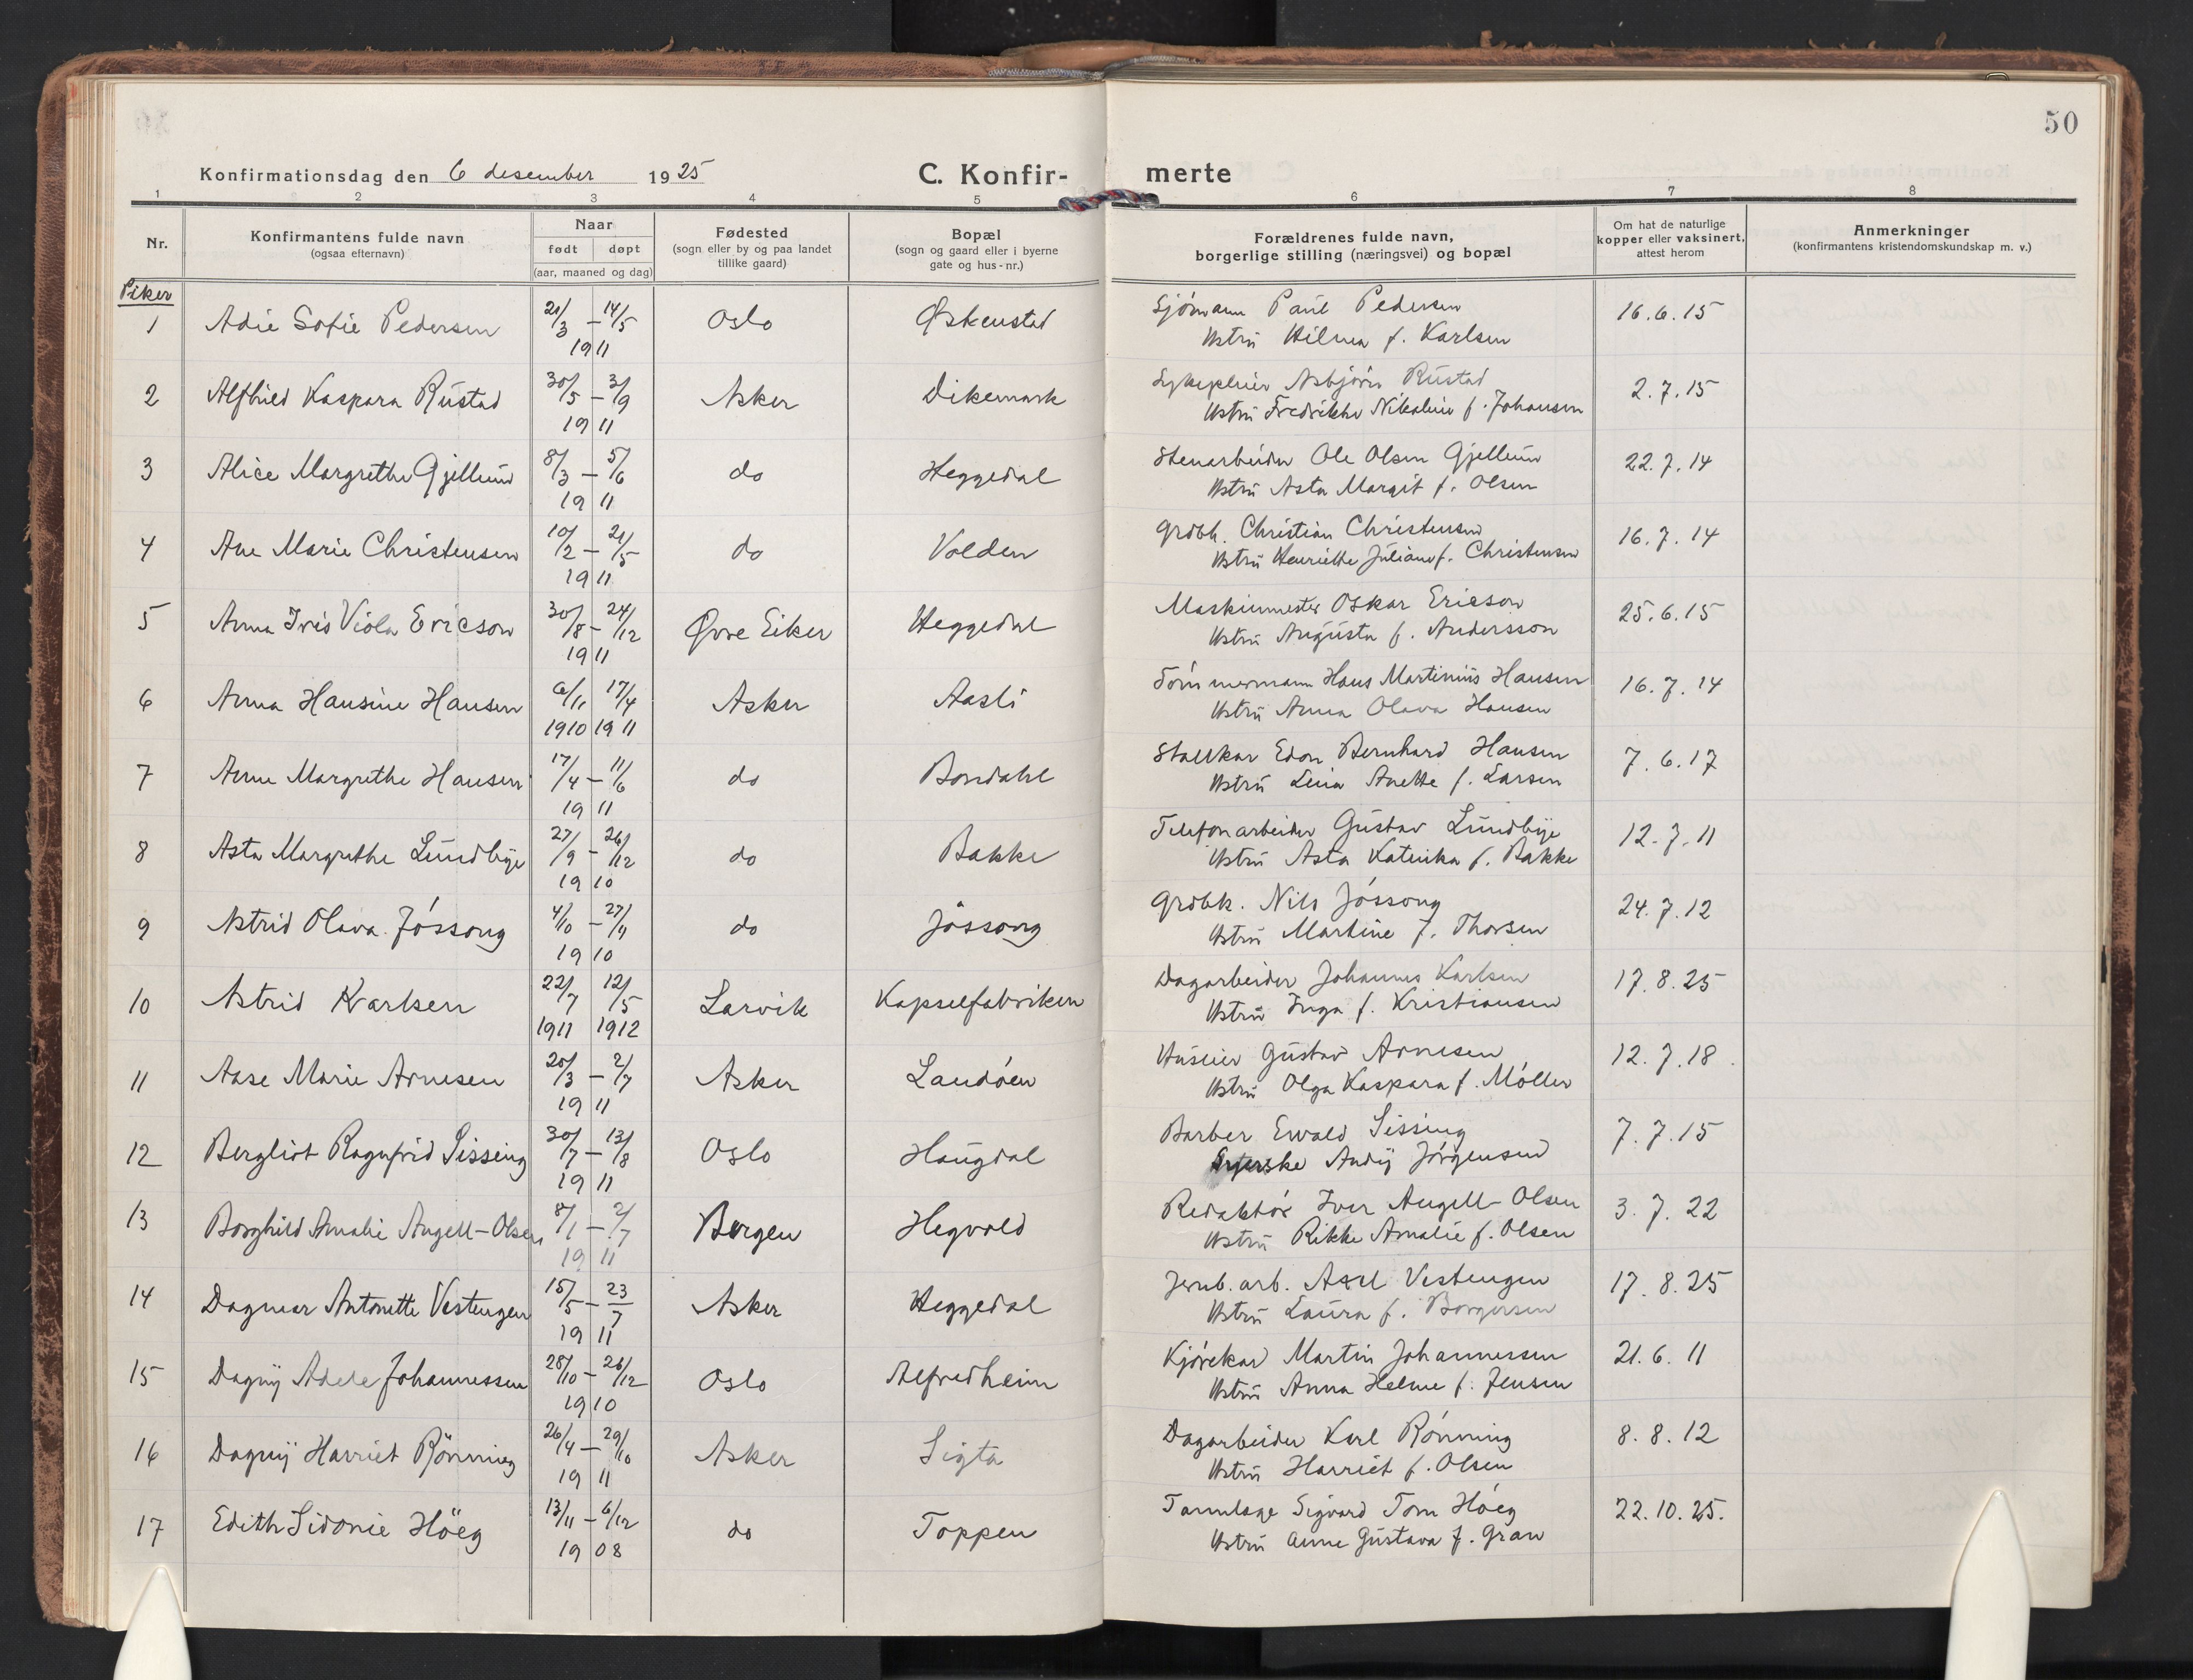 50
Konfirmationsdag den 6 desember 1925
C. Konfir-
merte
1 2 3 4 5 6 7 8
Nr.
Konfirmantens fulde navn
(ogsaa efternavn)
Naar
født døpt
(aar, maaned og dag)
Fødested
(sogn eller by og paa landet
tillike gaard)
Bopæl
(sogn og gaard eller i byerne
gate og hus-nr.)
Forældrenes fulde navn,
borgerlige stilling (næringsvei) og bopæl
Om hat de naturlige
kopper eller vaksinert,
attest herom
Anmerkninger
(konfirmantens kristendomskundskap m. v.)
Piker
1 Adie Sofie Pedersen 21/3 – 14/5 Oslo Østenstad Sjömann Paul Pedersen 16.6.15
1911 Hstrü Hilma f. Karlsen
2 Alfhild Kaspara Rüstad 30/5 – 3/9 Asker Dikemark Sykepleier Asbjörn Rüstad 2.7.15
1911 Hstrü Fredrikke Nikoline f. Johansen
3 Alice Margrethe Gjellum 8/3 – 5/6 do Heggedal Stenarbeider Ole Olsen Gjellum 22.7.14
1911 Hstrü Asta Margit f. Olsen
4 Ane Marie Christensen 10/2 – 21/5 do Volden Grdbk. Christian Christensen 16.7.14
1911 Hstrü Henriette Juliane f. Christensen
5 Anna Iris Viola Ericson 30/8 – 24/12 Øvre Eiker Heggedal Maskinmester Oskar Ericson 25.6.15
1911 Hstrü Augusta f. Andersson
6 Anna Hansine Hansen 6/11 17/4 Asker Aasli Tömmermann Hans Martinius Hansen 16.7.14
1910 1911 Hstrü Anna Olava Hansen
7 Anne Margrethe Hansen 17/4 – 11/6 do Bondahl Stallkar Edon Bernhard Hansen 7.6.17
1911 Hstrü Lina Anette f. Larsen
8 Asta Margrethe Lundbye 27/9 – 26/12 do Bakke Telefonarbeider Gustav Lundbye 12.7.11
1910 Hstrü Asta Katinka f. Bakke
9 Astrid Olava Jössong 4/10 – 27/11 do Jössong Grdbk. Nils Jössong 24.7.12
1910 Hstrü Martine f. Thorsen
10 Astrid Karlsen 22/7 12/5 Larvik Kapselfabriken Dagarbeider Johannes Karlsen 17.8.25
1911 1912 Hstrü Inga f. Kristiansen
11 Aase Marie Arnesen 20/3 – 2/7 Asker Landöen Huseier Gustav Arnesen 12.7.18
1911 Hstrü Olga Kaspara f. Möller
12 Bergliot Ragnfrid Sissing 30/7 – 13/8 Oslo Haugdal Barber Ewald Sissing 7.7.15
1911 Syerske Andy Jörgensen
13 Borghild Amalie Angell-Olsen 8/1 – 2/7 Bergen Hegvold Redaktör Iver Angell-Olsen 3.7.22
1911 Hstrü Rikke Amalie f. Olsen
14 Dagmar Antonette Vestengen 15/5 – 23/7 Asker Heggedal Jernb. arb. Axel Vestengen 17.8.25
1911 Hstrü Laura f. Borgersen
15 Dagny Adele Johannessen 28/10 – 26/12 Oslo Alfredheim Kjörekar Martin Johannessen 21.6.11
1910 Hstrü Anna Helme f. Jensen
16 Dagny Harriet Rönning 26/4 – 29/10 Asker Sigta Dagarbeider Karl Rönning 8.8.12
1911 Hstrü Harriet f. Olsen
17 Edith Sidonie Höeg 13/11 – 6/12 do Toppen Tannlæge Sigvard Tom Höeg 22.10.25.
1908 Hstrü Anne Gustava f. Gran